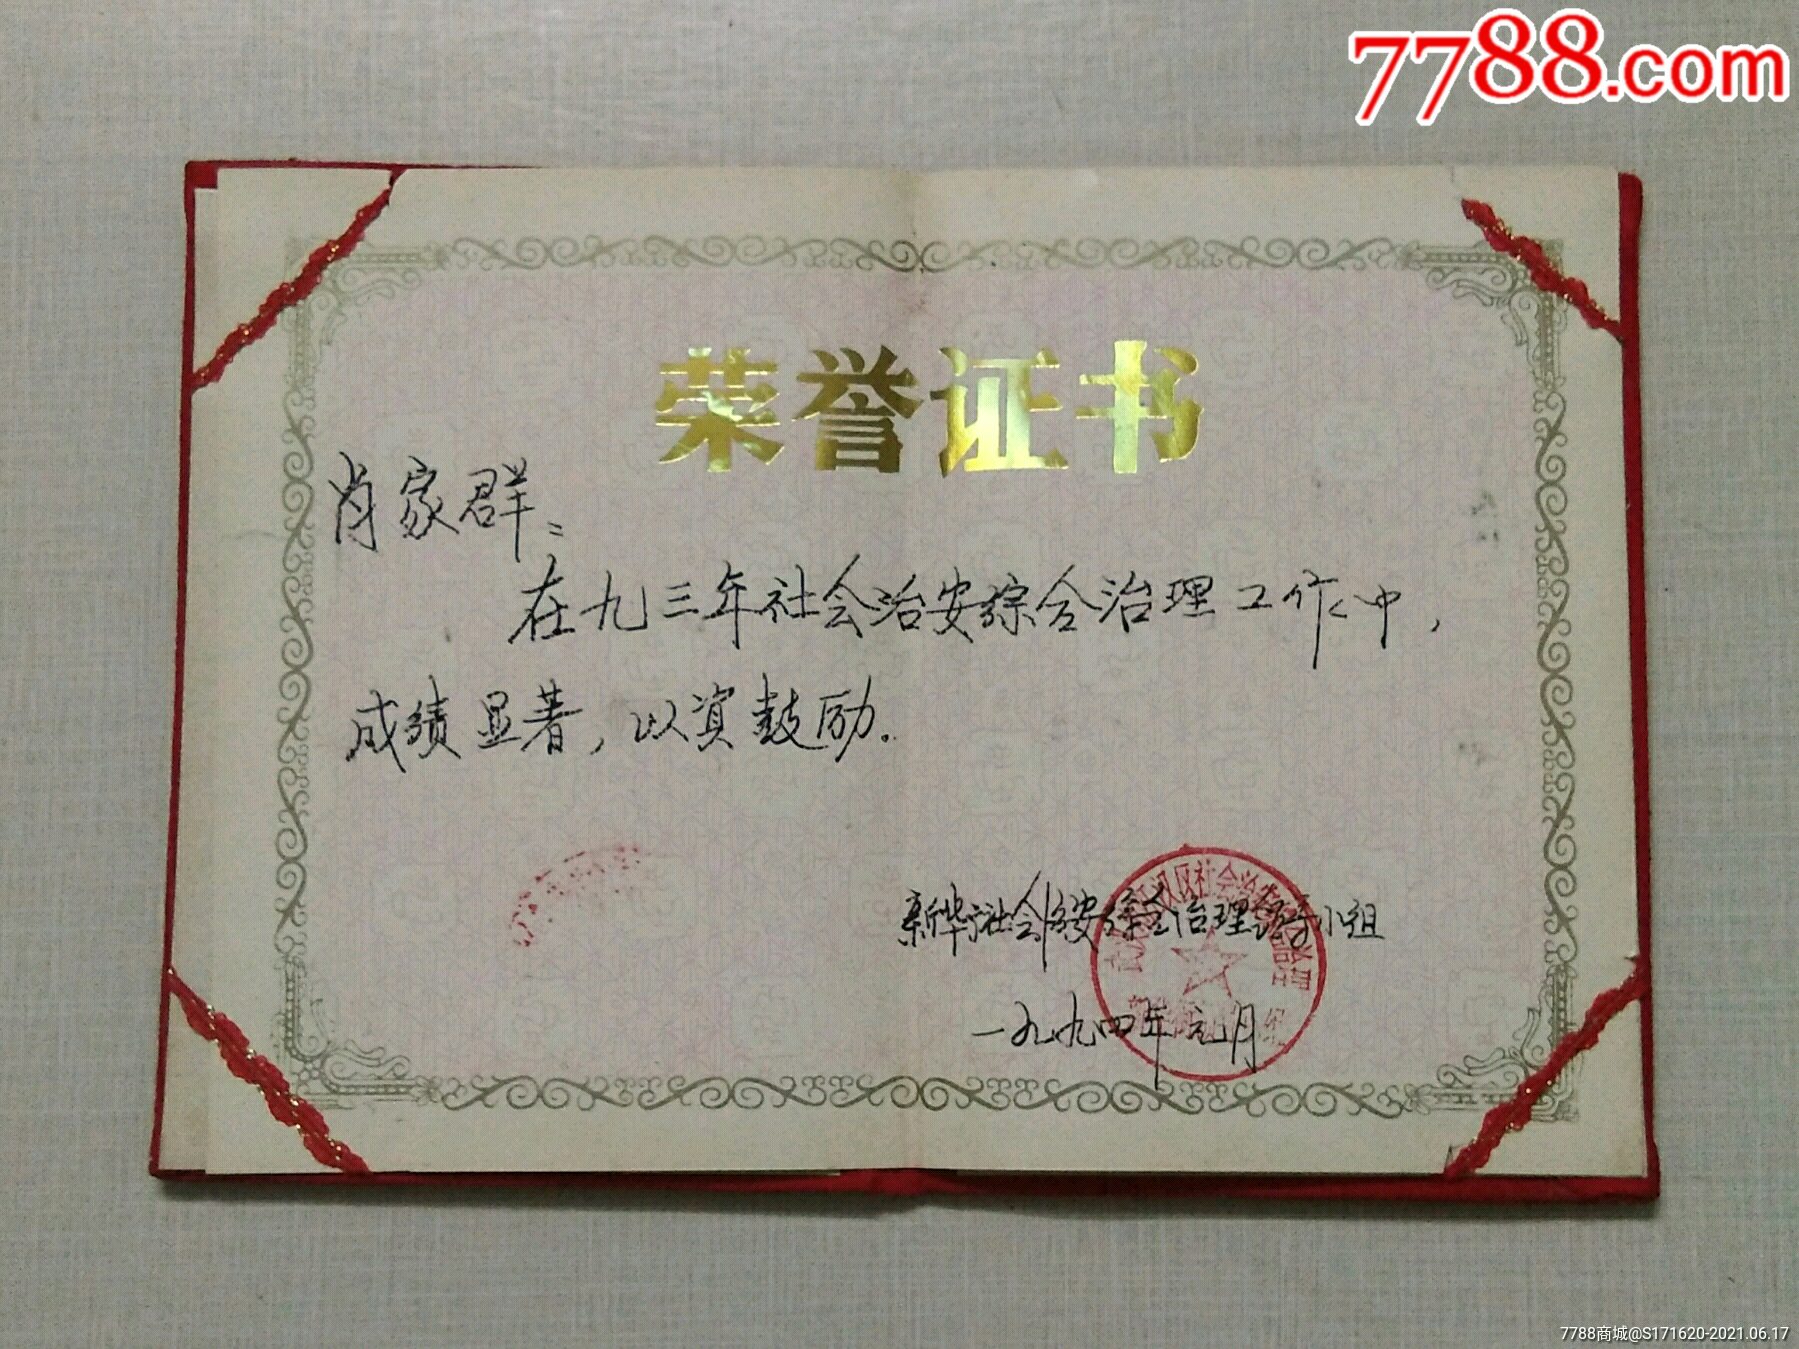 7788.com
荣誉证书
肖家群:
在九三年社会治安综合治理工作中,
成绩显著,以资鼓励.
汉区社会治安
治理
新华街社会治安综合治理领导小组
一九九四年元月
7788商城@S171620-2021.06.17